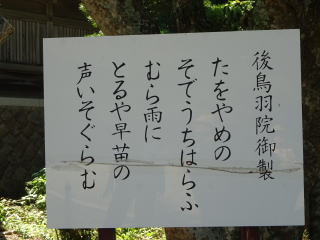 後鳥羽院御製
たをやめの
そでうちはらふ
むら雨に
とるや早苗の
声いそぐらむ